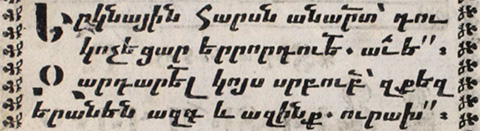 Երկնային Հարսն անարատ՝ դու
կոչեցար երրորդուե. աւե՟՟։
Զարդարեալ կոյս սրբուբ՝ զքեզ
երանեն ազգ և ազինք. ուրախ՟՟։